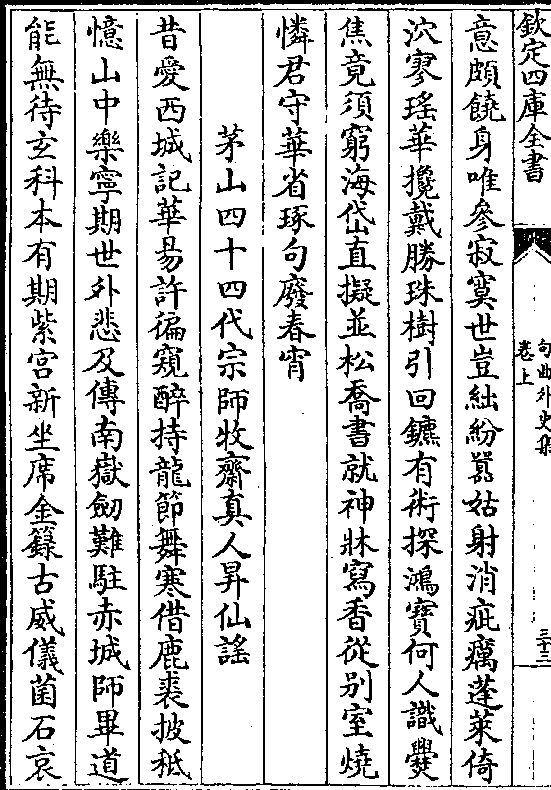 欽定四庫全書
句曲外史集
卷上
三十三
意頗饒身唯參寂寞世豈絀紛囂姑射消疵癘蓬萊倚
泬寥瑤華攬戴勝珠樹引回鑣有術探鴻寶何人識爨
焦竟須窮海岱直擬並松喬書就神牀寫香從别室燒
憐君守華省琢句廢春宵
茅山四十四代宗師牧齋真人昇仙謡
昔愛西城記華昜許徧窺醉持龍節舞寒借鹿裘披秪
憶山中樂寧期世外悲及傳南嶽劒難駐赤城師畢道
能無待玄科本有期紫宫新坐席金籙古威儀菌石哀